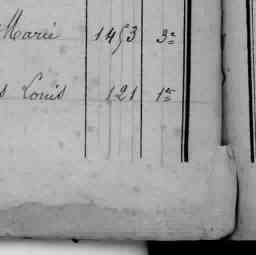 Marie 1453 3e
s Louis 121 1re